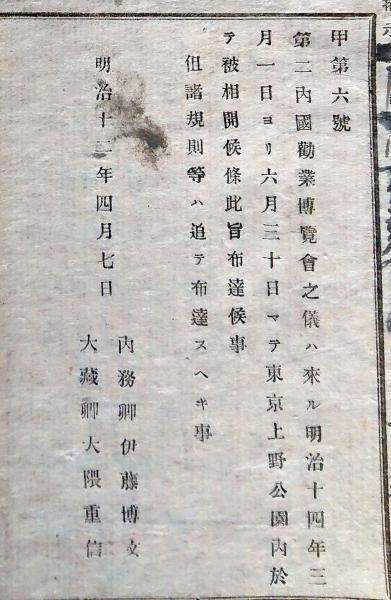 甲第六號
第二內國勸業博覽會之儀ハ來ル明治十四年三
月一日ヨリ六月三十日マテ東京上野公園內於
テ被相開候條此旨布達候事
但諸規則等ハ追テ布達スヘキ事
明治十二年四月七日
內務卿伊藤博文
大藏卿大隈重信